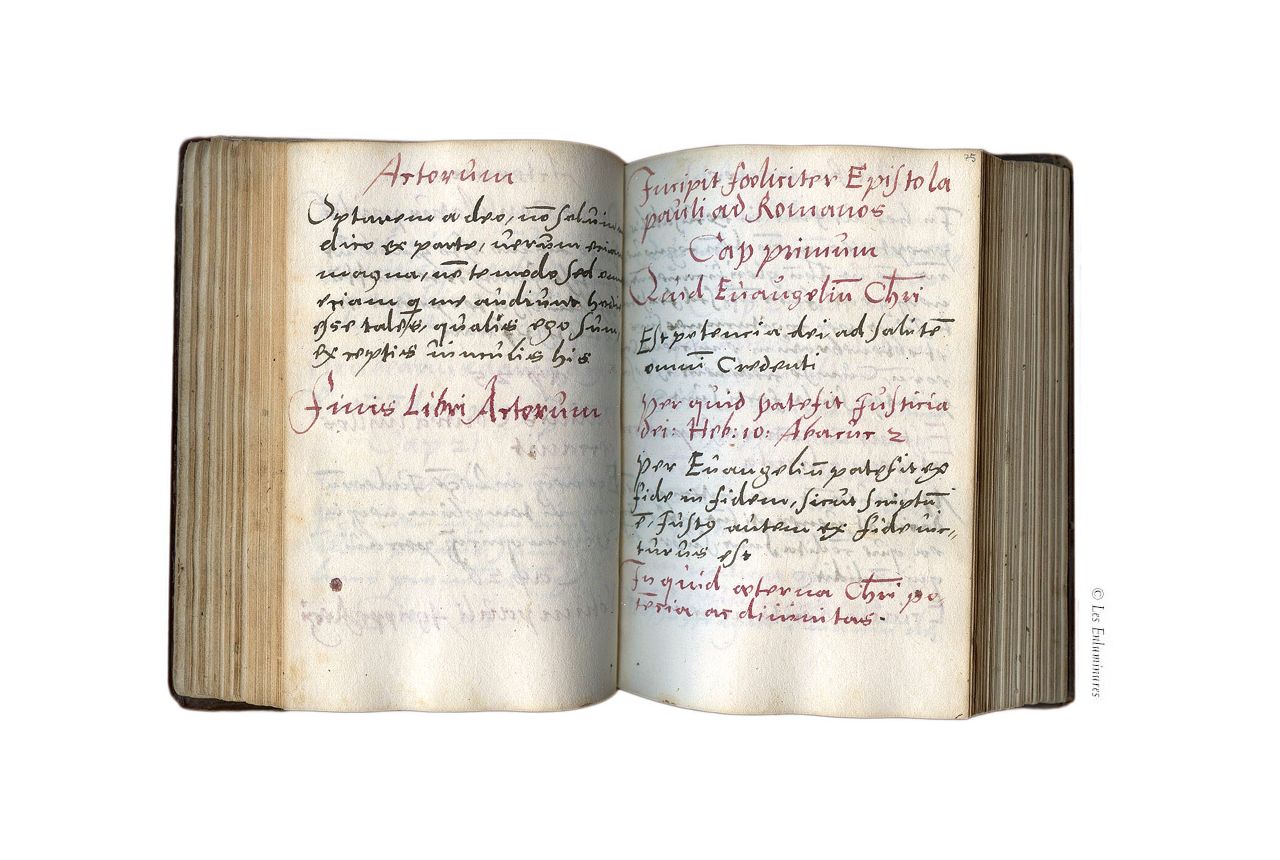 Actorum
Optarem a deo, nō solum
dico ex parte, uerum eciam
magna, nō te modo sed om
eciam q me audiunt hodie
esse tales, qualis ego sum,
exceptis uinculis his
Finis Libri Actorum
25
Incipit fœliciter Epistola
pauli ad Romanos
Cap primum
Quid Euangeliū Chri
Est potencia dei ad salutē
omni Credenti
per quid patefit Iusticia
dei: Heb: 10: Abacuc 2
per Euangeliū patefit ex
fide in fidem, sicut scriptū
ē, Iustꝰ autem ex fide uic-
turus est
In quid æterna Chri po
tēcia ac diuinitas.
© Les Enluminures